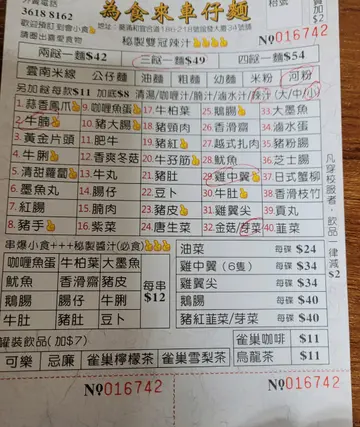 3618 8162 為食來車仔麵
歡迎預訂到會小食
請圈出喜愛食物
№016742
秘製雙冠辣汁
兩餸一麵$42 三餸一麵$49 四餸一麵$54
雲南米線 公仔麵 油麵 粗麵 幼麵 米粉 河粉
另加餸每款$11 加底$6 清湯/咖喱汁/腩汁/鹵水汁/辣汁(大/中/小)
1.蒜香鳳爪 9.咖喱魚蛋 17.牛柏葉 25.鵝腸 33.大墨魚
2.牛腩 10.豬大腸 18.豬頸肉 26.香滑齋 34.滷水蛋
3.黃金片頭 11.肥牛 19.豬紅 27.越式扎肉 35.豬粉腸
4.牛脷 12.香爽冬菇 20.牛孖筋 28.魷魚 36.芝士腸
5.清甜蘿蔔 13.牛丸 21.豬肚 29.雞中翼 37.日式蟹柳
6.墨魚丸 14.腸仔 22.豆卜 30.牛肚 38.香滑枝竹
7.紅腸 15.腩肉 23.豬皮 31.雞翼尖 39.貢丸
8.豬手 16.紫菜 24.唐生菜 32.金菇/芽菜 40.韮菜
凡穿校服者,飲品一律減$2
串爆小食+++秘製醬汁(必食)
咖喱魚蛋 牛柏葉 大墨魚
魷魚 香滑齋 豬大腸
鵝腸 腸仔 牛脷
牛肚 豬肚 豆卜
每串$12
油菜 每碟 $24
雞中翼 (6隻) 每碟 $34
雞翼尖 每碟 $34
鵝腸 每碟 $40
豬紅韮菜/芽菜 每碟 $40
罐裝飲品(加$7)
可樂 忌廉 雀巢檸檬茶 雀巢雪梨茶
雀巢咖啡 $11
烏龍茶 $11
№016742 №016742